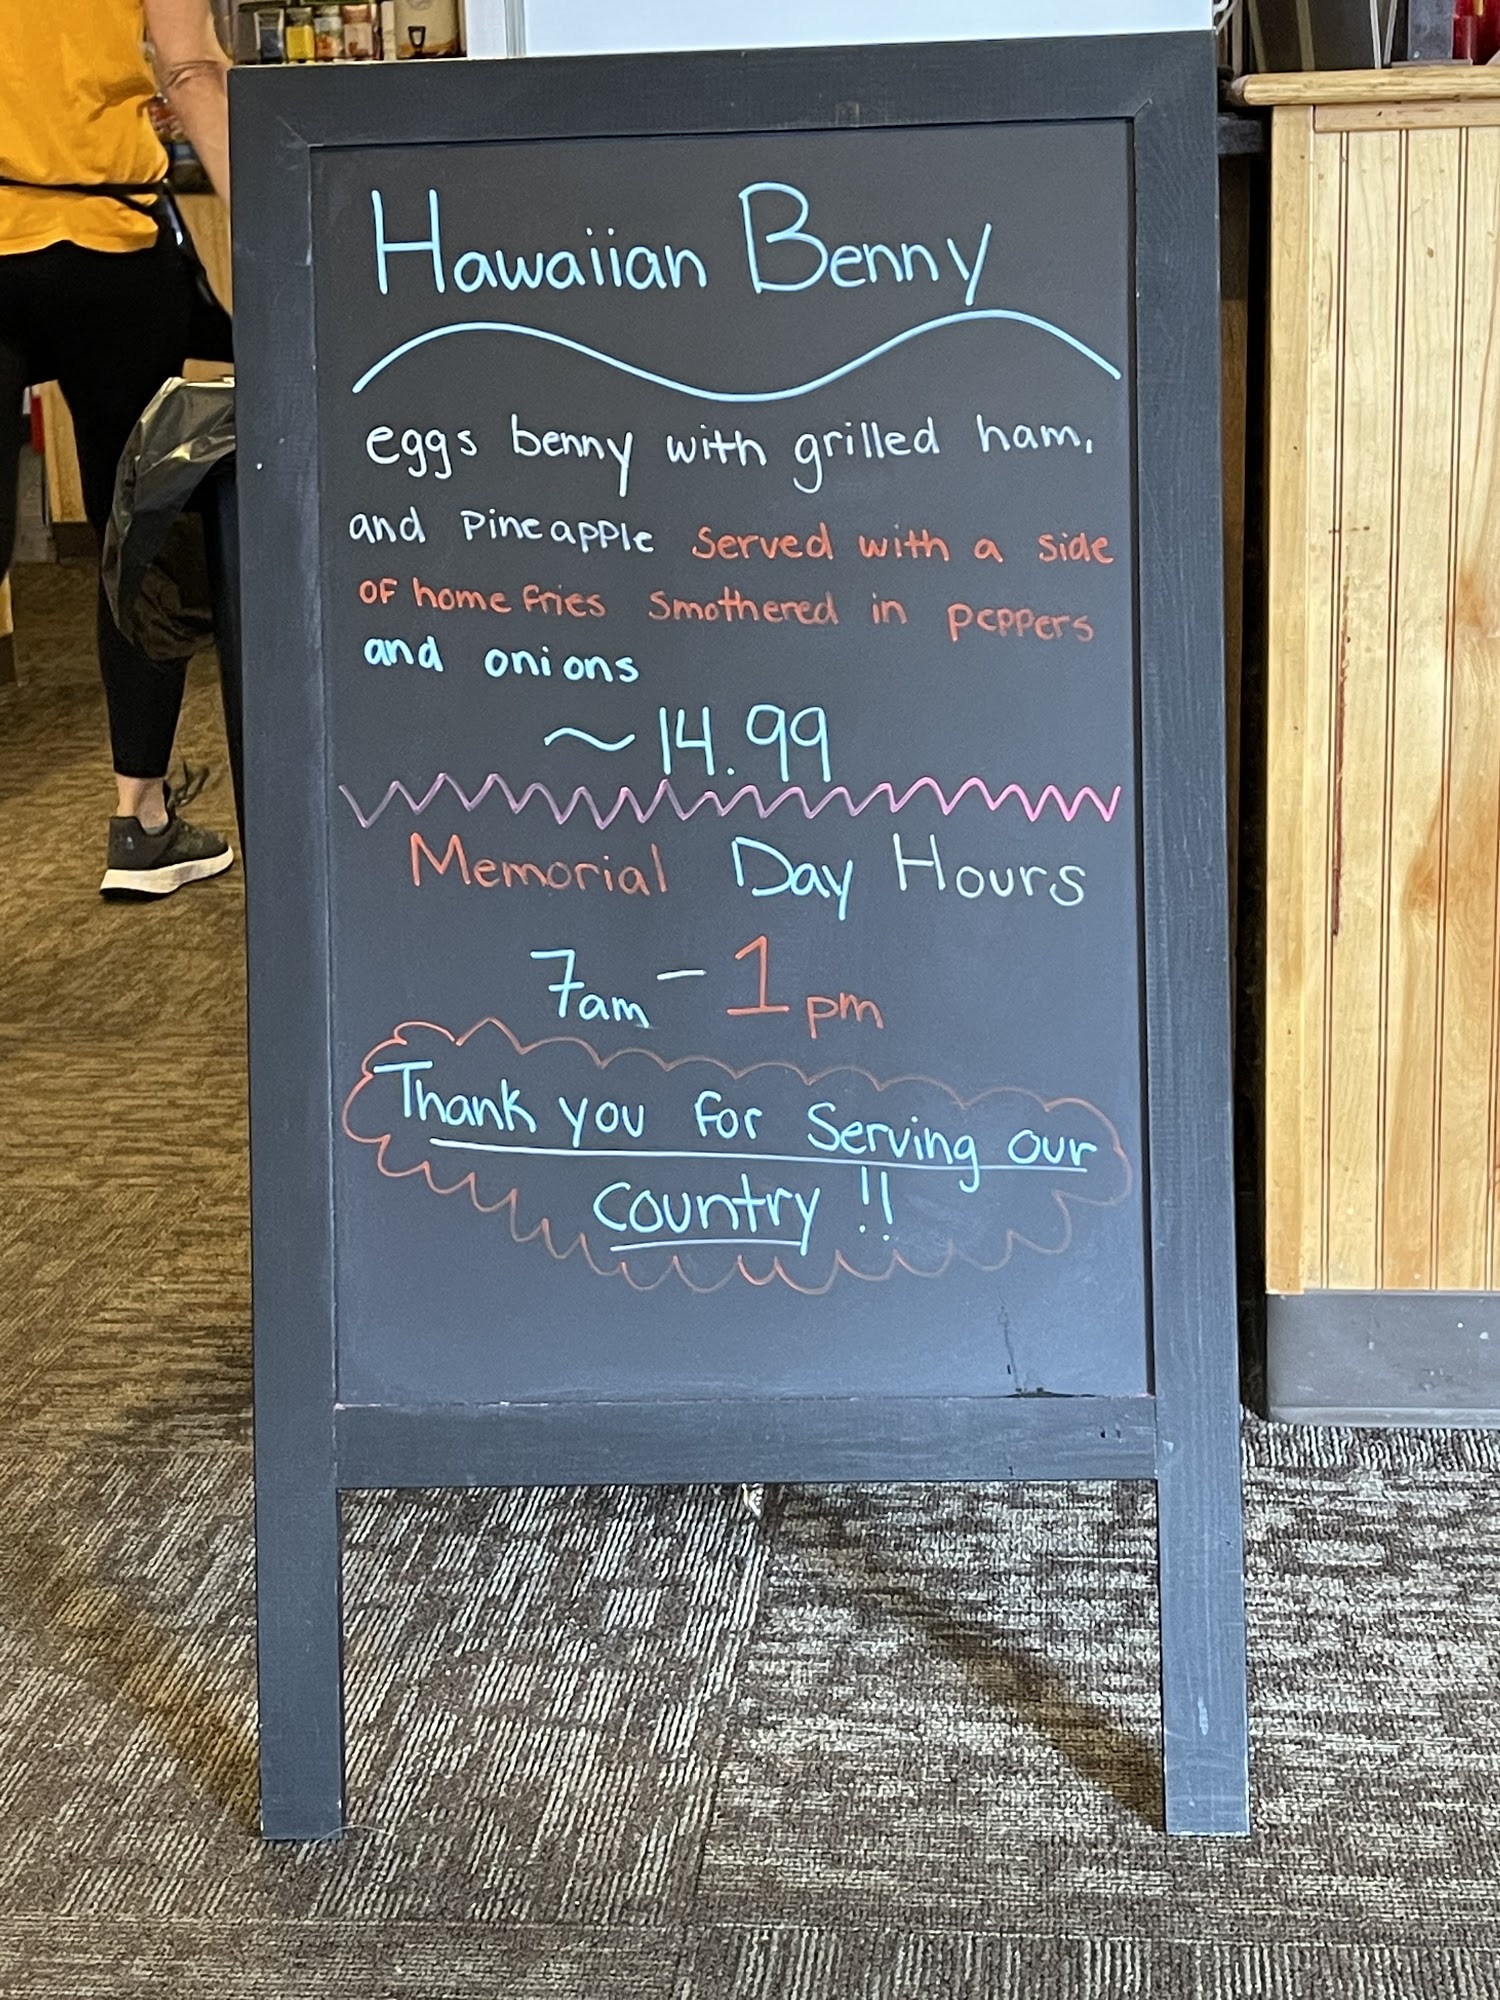 Hawaiian Benny
eggs benny with grilled ham,
and pineapple served with a side
of home fries smothered in peppers
and onions
~14.99
Memorial Day Hours
7am - 1pm
Thank you for Serving our
country !!